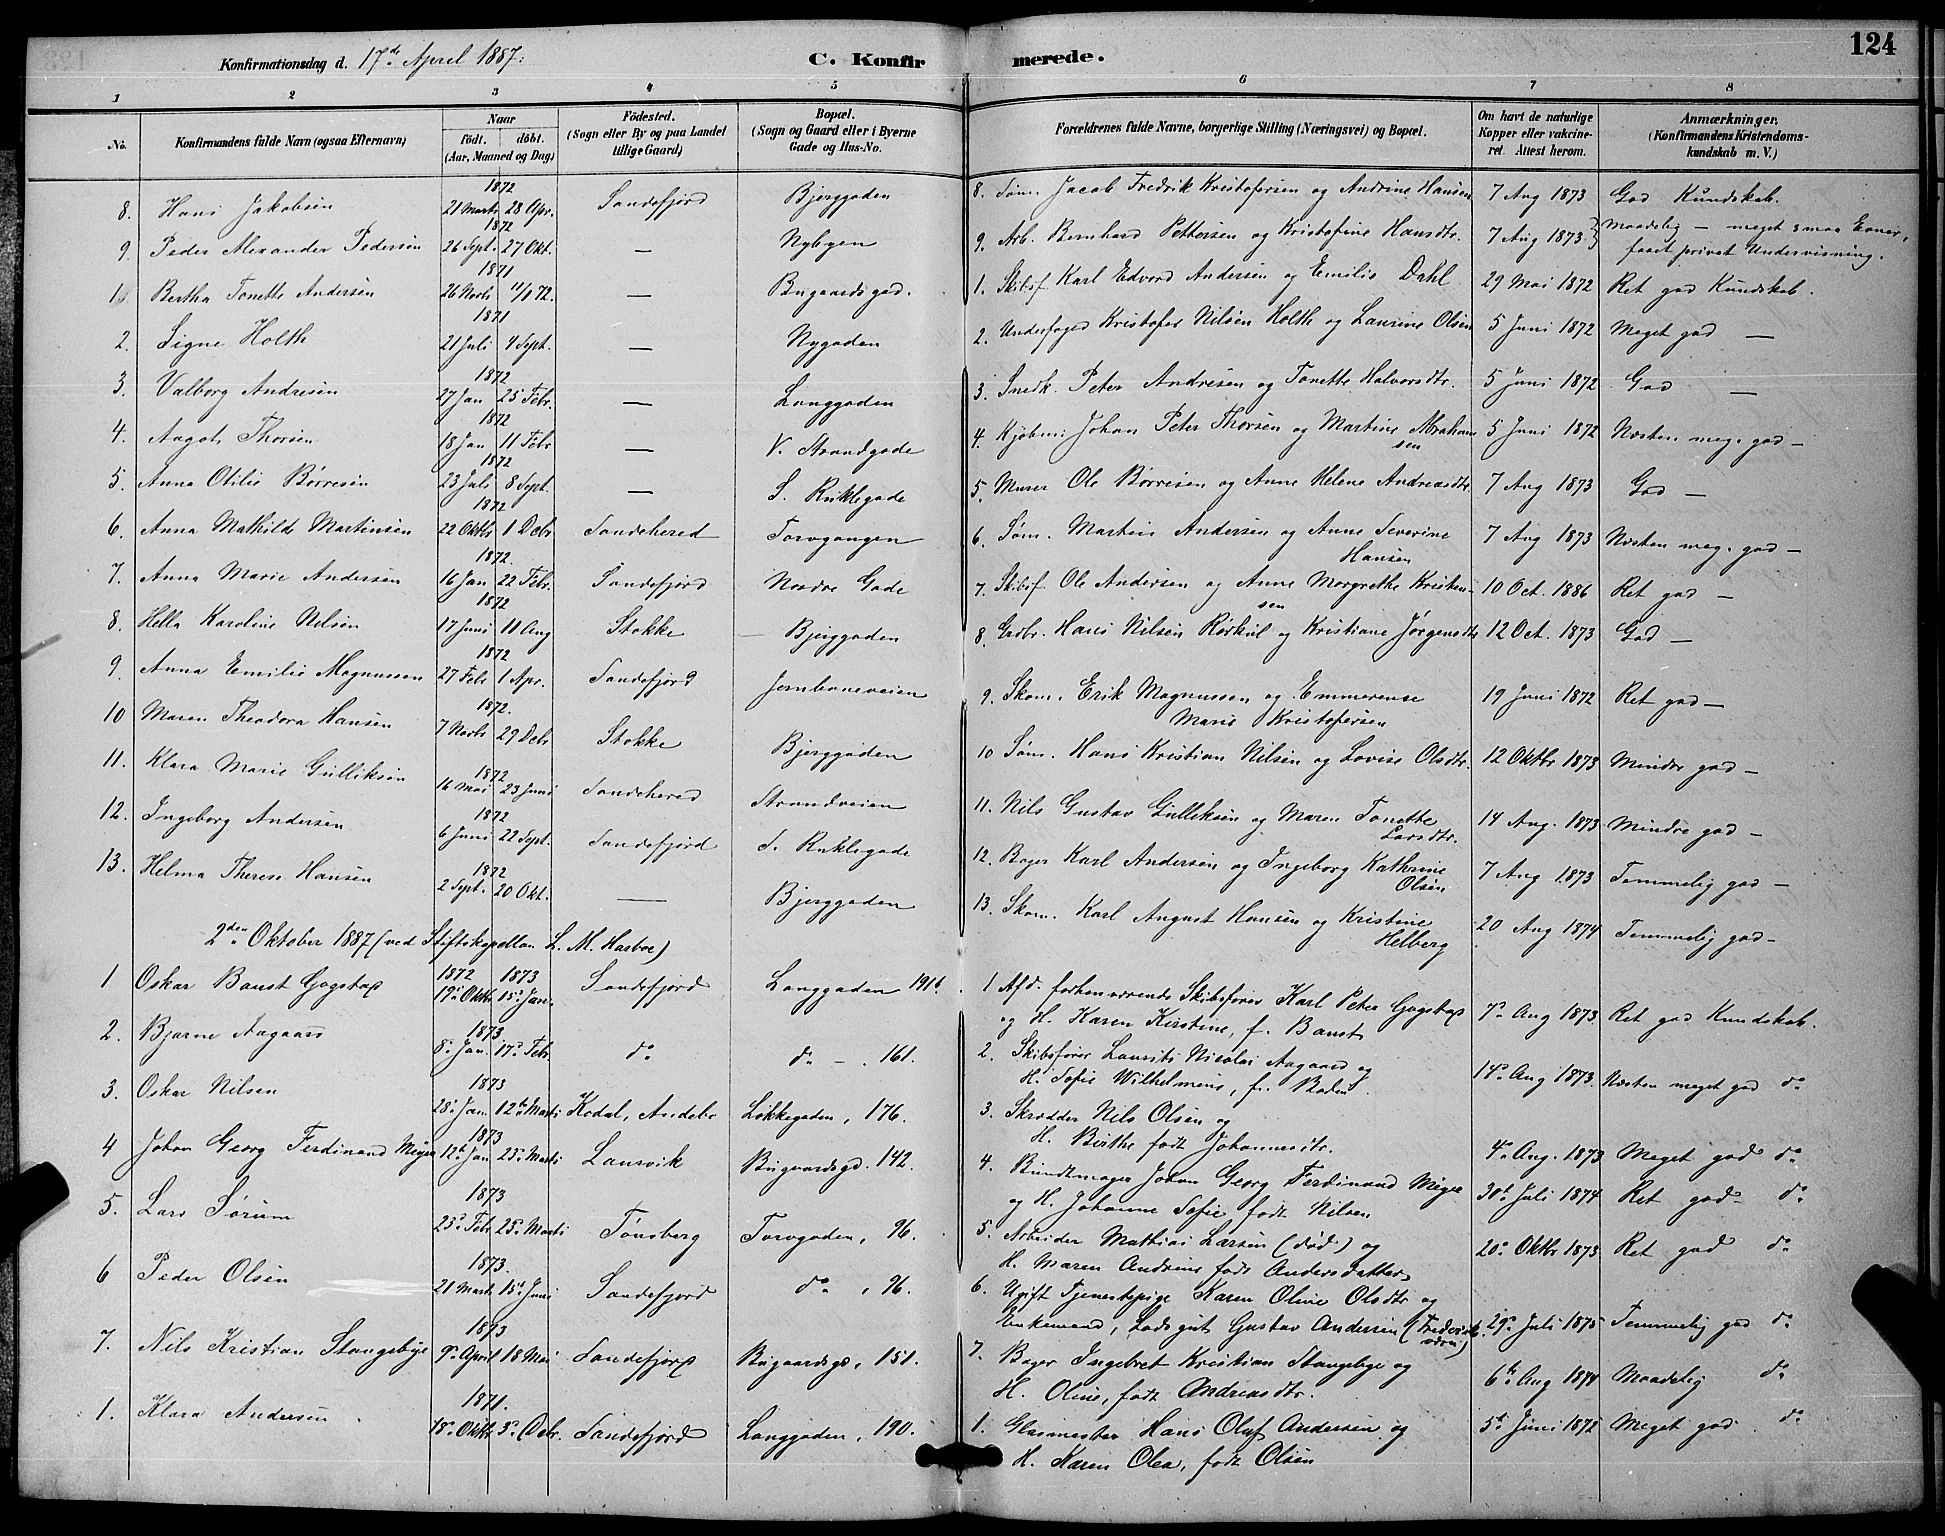 Konfirmationsdag d. 17de April 1887.
C. Konfirmerede.
124
1 2 3 4 5 6 7 8
No. Konfirmandens fulde Navn (ogsaa Efternavn) Naar født. døbt. (Aar, Maaned og Dag) Fødested. (Sogn eller By og paa Landet tillige Gaard) Bopæl. (Sogn og Gaard eller i Byerne Gade og Hus-No. Forældrenes fulde Navne, borgerlige Stilling (Næringsvei) og Bopæl. Om havt de naturlige Kopper eller vakcineret. Attest herom. Anmærkninger. (Konfirmandens Kristendomskundskab m. V.)
8. Hans Jakobsen 1872 21 Marts 28 Apr. Sandefjord Bjerggaden 8. Søm. Jacob Fredrik Kristofersen og Andrine Hansen 7 Aug 1873 God Kundskab.
9. Peder Alexander Pedersen 1872 26 Sept. 27 Okt. — Nybyen 9. Arb. Bernhard Pettersen og Kristofine Hansdtr. 7 Aug 1873 Maadelig — meget smaa Evner, faaet privat Undervisning.
1. Bertha Tonette Andersen 1871 26 Novb 11/2 72. — Bugaardsgad. 1. Skibsf. Karl Edvard Andersen og Emilie Dahl 29 Mai 1872 Ret god Kundskab.
2. Signe Holth 1871 21 Juli 4 Sept. — Nygaden 2. Underfoged Kristofer Nilsen Holth og Laurine Olsen 5 Juni 1872 Meget god —
3. Valborg Andresen 1872 27 Jan 25 Febr. — Langgaden 3. Snedk. Peter Andresen og Tonette Halvorsdtr. 5 Juni 1872 God —
4. Aagot Thorsen 1872 18 Jan 11 Febr — V. Strandgade 4. Kjøbm. Johan Peter Thorsen og Martine Abrahamsen 5 Juni 1872 Næsten meg. god —
5. Anna Otilie Børresen 1872 23 Juli 8 Sept. — S. Ruklegade 5. Murer Ole Børresen og Anne Helene Andreasdtr. 7 Aug 1873 God —
6. Anna Mathilde Martinsen 1872 22 Oktbr 1 Debr Sandehered Torvgangen 6. Søm. Martin Andersen og Anne Severine Hansen 7 Aug 1873 Næsten meg. god —
7. Anna Marie Andersen 1872. 16 Jan 22 Febr. Sandefjord Nordre Gade 7. Skibsf. Ole Andersen og Anne Margrethe Kristensen 10 Oct. 1886 Ret god —
8. Hella Karoline Nilsen 1872 17 Juni 11 Aug Stokke Bjerggaden 8. Grdbr. Hans Nilsen Rørkul og Kristiane Jørgensdtr 12 Oct. 1873 God —
9. Anna Emilie Magnussen 1872 27 Febr 1 Apr. Sandefjord Jernbaneveien 9. Skom. Erik Magnussen og Emmerense Marie Kristofersen 19 Juni 1872 Ret god —
10 Maren Theodora Hansen 1872. 7 Novbr 29 Debr Stokke Bjerggaden 10 Søm. Hans Kristian Nilsen og Lovise Olsdtr. 12 Oktbr 1873 Mindre god —
11. Klara Marie Gulliksen 1872 16 Mai 23 Juni Sandehered Strandveien 11. Nils Gustav Gulliksen og Maren Tonette Larsdtr. 14 Aug. 1873 Mindre god —
12. Ingeborg Andersen 1872 6 Juni 22 Sept. Sandefjord S. Ruklegade 12. Bager Karl Andersen og Ingeborg Kathrine Olsen 7 Aug 1873 Temmelig god —
13. Helma Therese Hansen 1872 2 Sept. 20 Okt. — Bjerggaden 13. Skom. Karl August Hansen og Kristine Helberg 20 Aug 1874 Temmelig god —
2den Oktober 1887 (ved Stiftskapellan L. M. Harboe)
1 Oskar Baust Gogstad 1872 19de Oktbr 1873 15de Jan. Sandefjord Langgaden 191b. 1 Afd. forhenværende Skibsfører Karl Peter Gogstad og H. Karen Kirstine, f. Baust 7de Aug 1873 Ret god Kundskab.
2. Bjarne Aagaard 1873. 8de Jan. 17de Febr. do do — 161. 2. Skibsfører Laurits Nicolai Aagaard og H. Sofie Wilhelmine, f. Boden 14de Aug 1873. Næsten meget god do
3. Oskar Nilsen 1873 28de Jan. 12te Marts Kodal, Andebu Løkkegaden, 176. 3. Skrædder Nils Olsen og H. Birthe født Johannesdtr. 4de Aug. 1873 Meget god do
4 Johan Georg Ferdinand Meyer 1873 12te Jan 23de Marts Laurvik Bugaardsgd. 142. 4. Bundtmager Johan Georg Ferdinand Meyer og H. Johanne Sofie født Nilsen 30te Juli 1874 Ret god do
5. Lars Sørum 1873 23de Febr 25de Marts Tønsberg Torvgaden, 96. 5. Arbeider Mathias Larsen (død) og H. Maren Andrine født Andersdatter 20de Oktbr 1873 Ret god do
6 Peder Olsen 1873. 21 Marts 15de Juni Sandefjord do, 96. 6. Ugift Tjenestepige Karen Oline Olsdtr og Enkemand, Lodsgut Gustav Andersen (Fredriksværn) 29de Juli 1875 Temmelig god do
7. Nils Kristian Stangebye 1873 9de April 18 Mai Sandefjord Bugaardsgd, 151. 7. Bager Ingebret Kristian Stangebye og H. Oline, født Andreasdtr. 6te Aug 1874 Maadelig do
1. Klara Andersen 1871. 18de Oktbr 3de Debr. Sandefjord Langgaden, 190. 1. Glasmester Hans Oluf Andersen og H. Karen Olea, født Olsen 5te Juni 1872 Meget god do